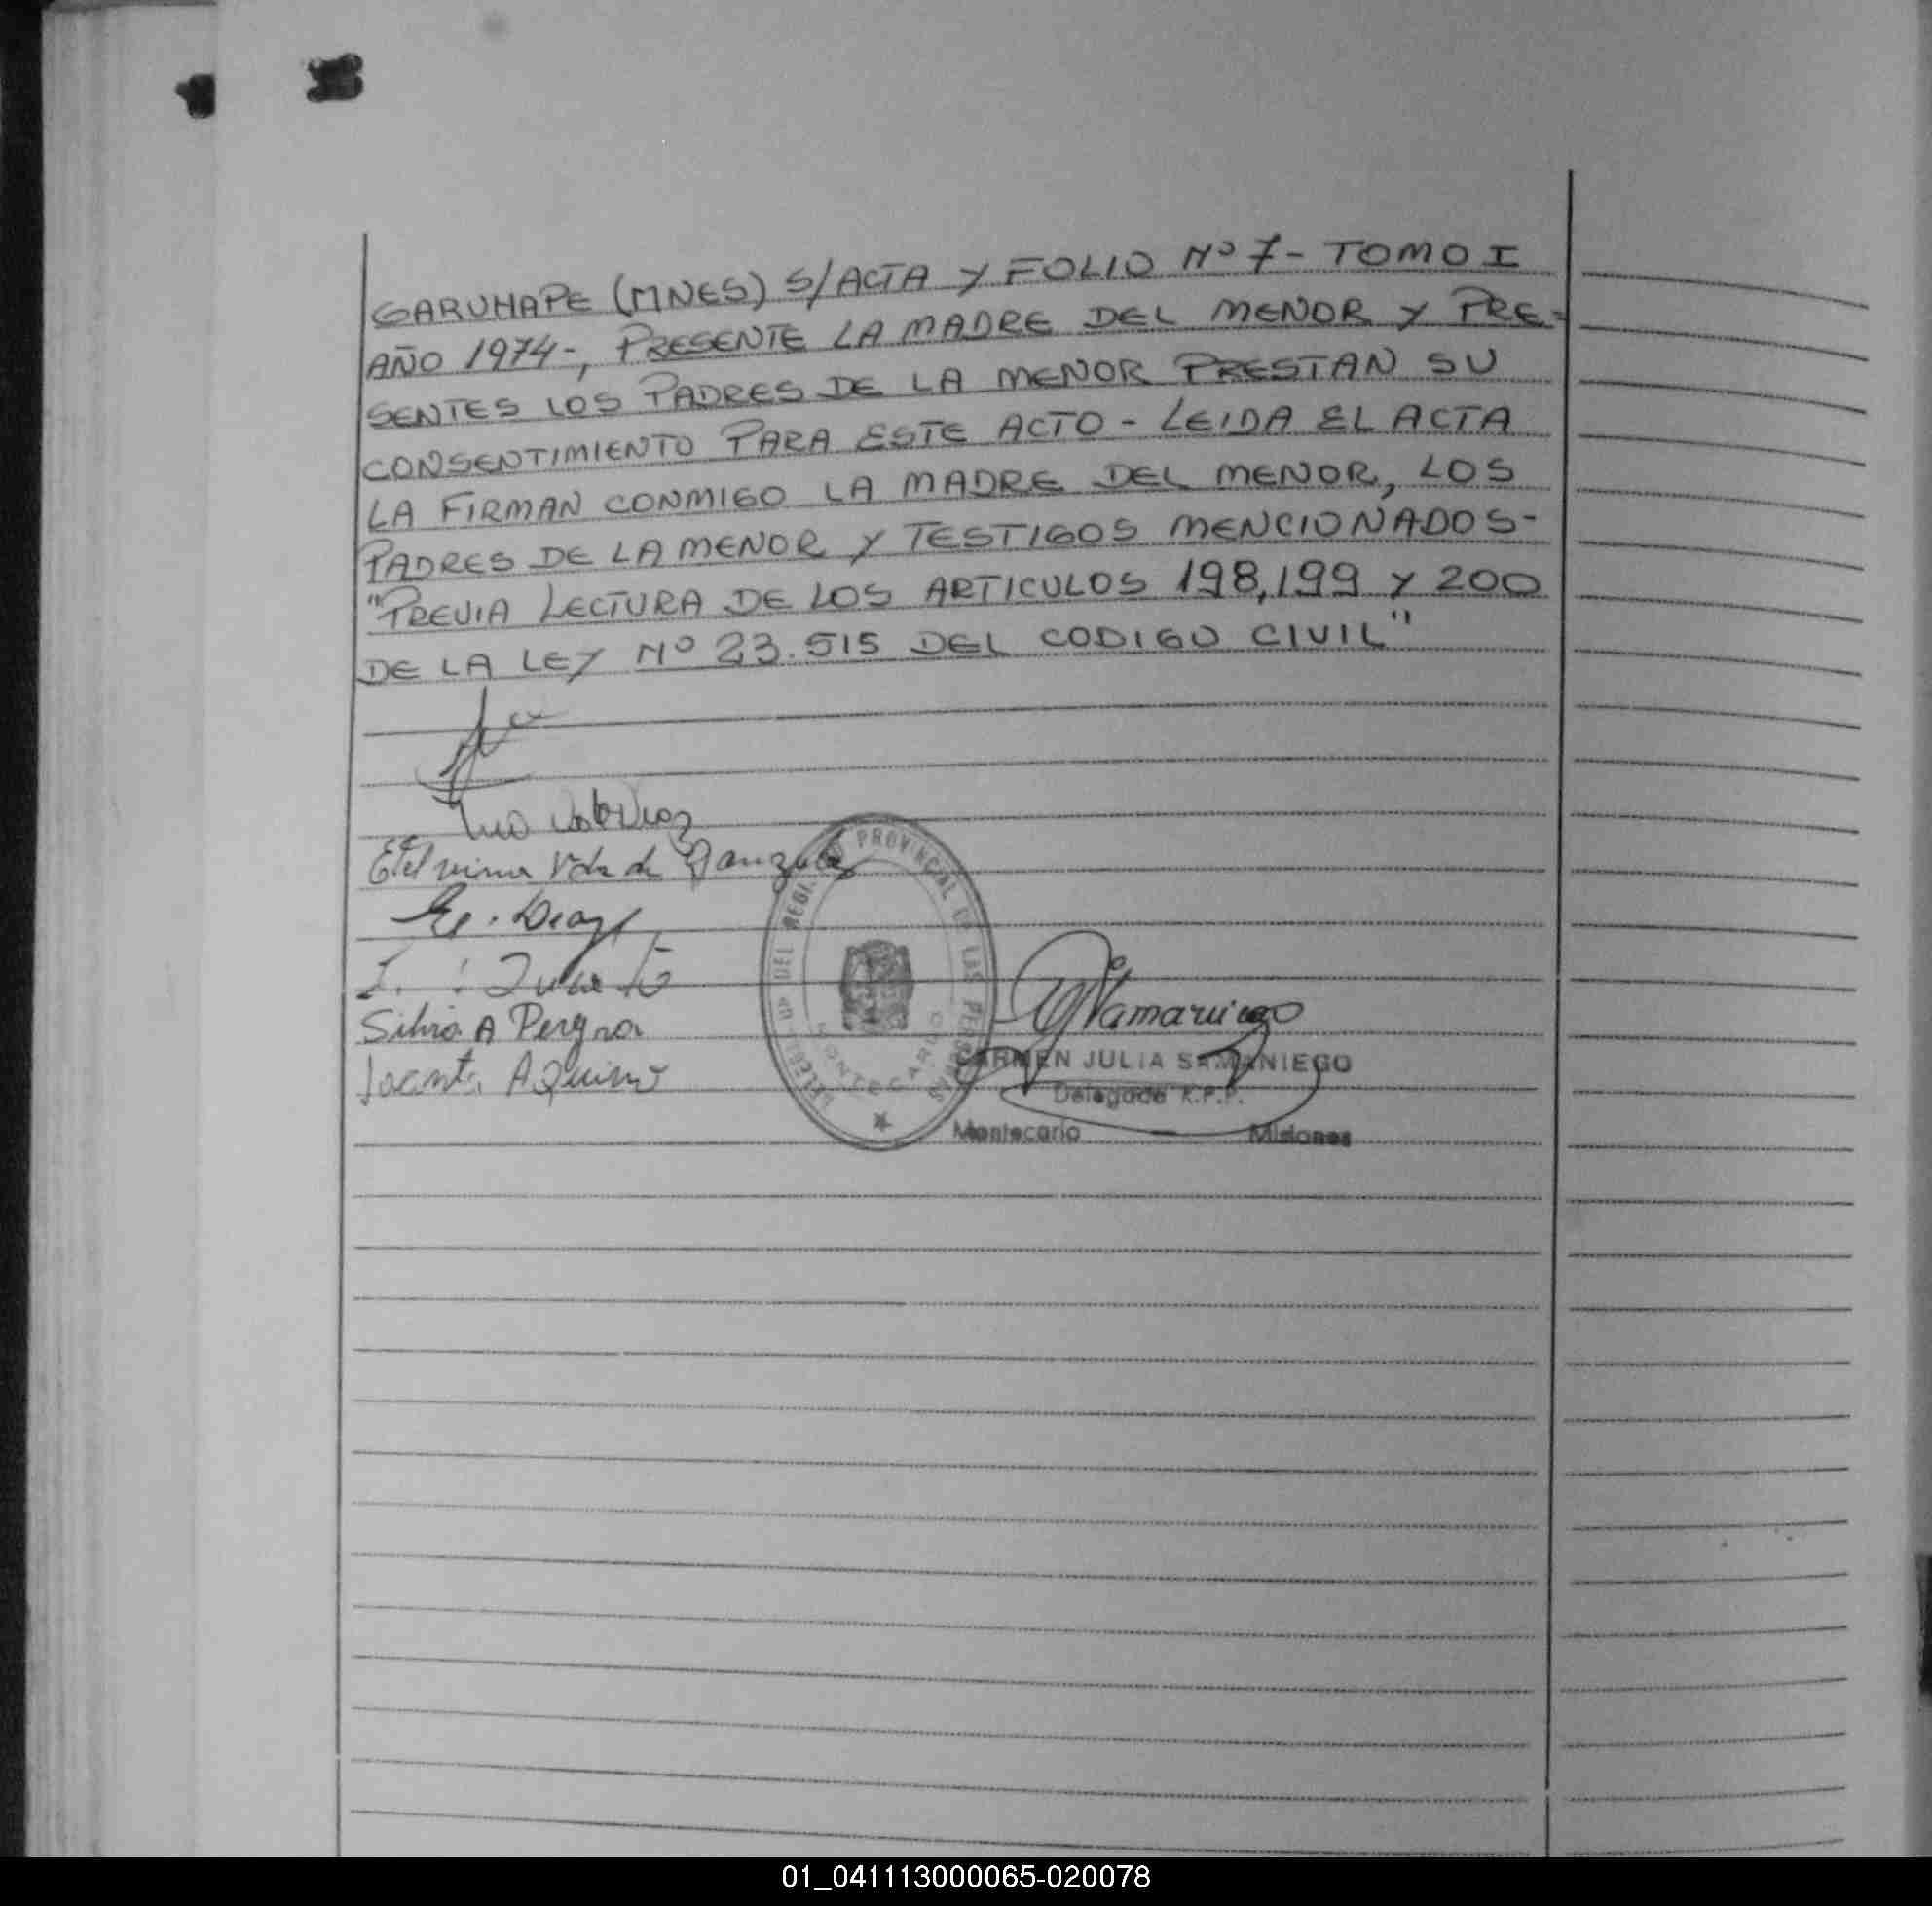 GARUHAPE (MNES) S/ACTA Y FOLIO Nº 7 - TOMO I
AÑO 1974-, PRESENTE LA MADRE DEL MENOR Y PRE-
SENTES LOS PADRES DE LA MENOR PRESTAN SU
CONSENTIMIENTO PARA ESTE ACTO - LEIDA EL ACTA
LA FIRMAN CONMIGO LA MADRE DEL MENOR, LOS
PADRES DE LA MENOR Y TESTIGOS MENCIONADOS-
"PREVIA LECTURA DE LOS ARTICULOS 198, 199 Y 200
DE LA LEY Nº 23.515 DEL CODIGO CIVIL"
Etelvina Vda de Gonzalez
Diaz
Silvia A
Aquino
PROVINCIAL DE LAS PERSONAS
MONTECARLO
CARMEN JULIA SAMANIEGO
Delegada R.P.P.
Montecarlo Misiones
01_041113000065-020078